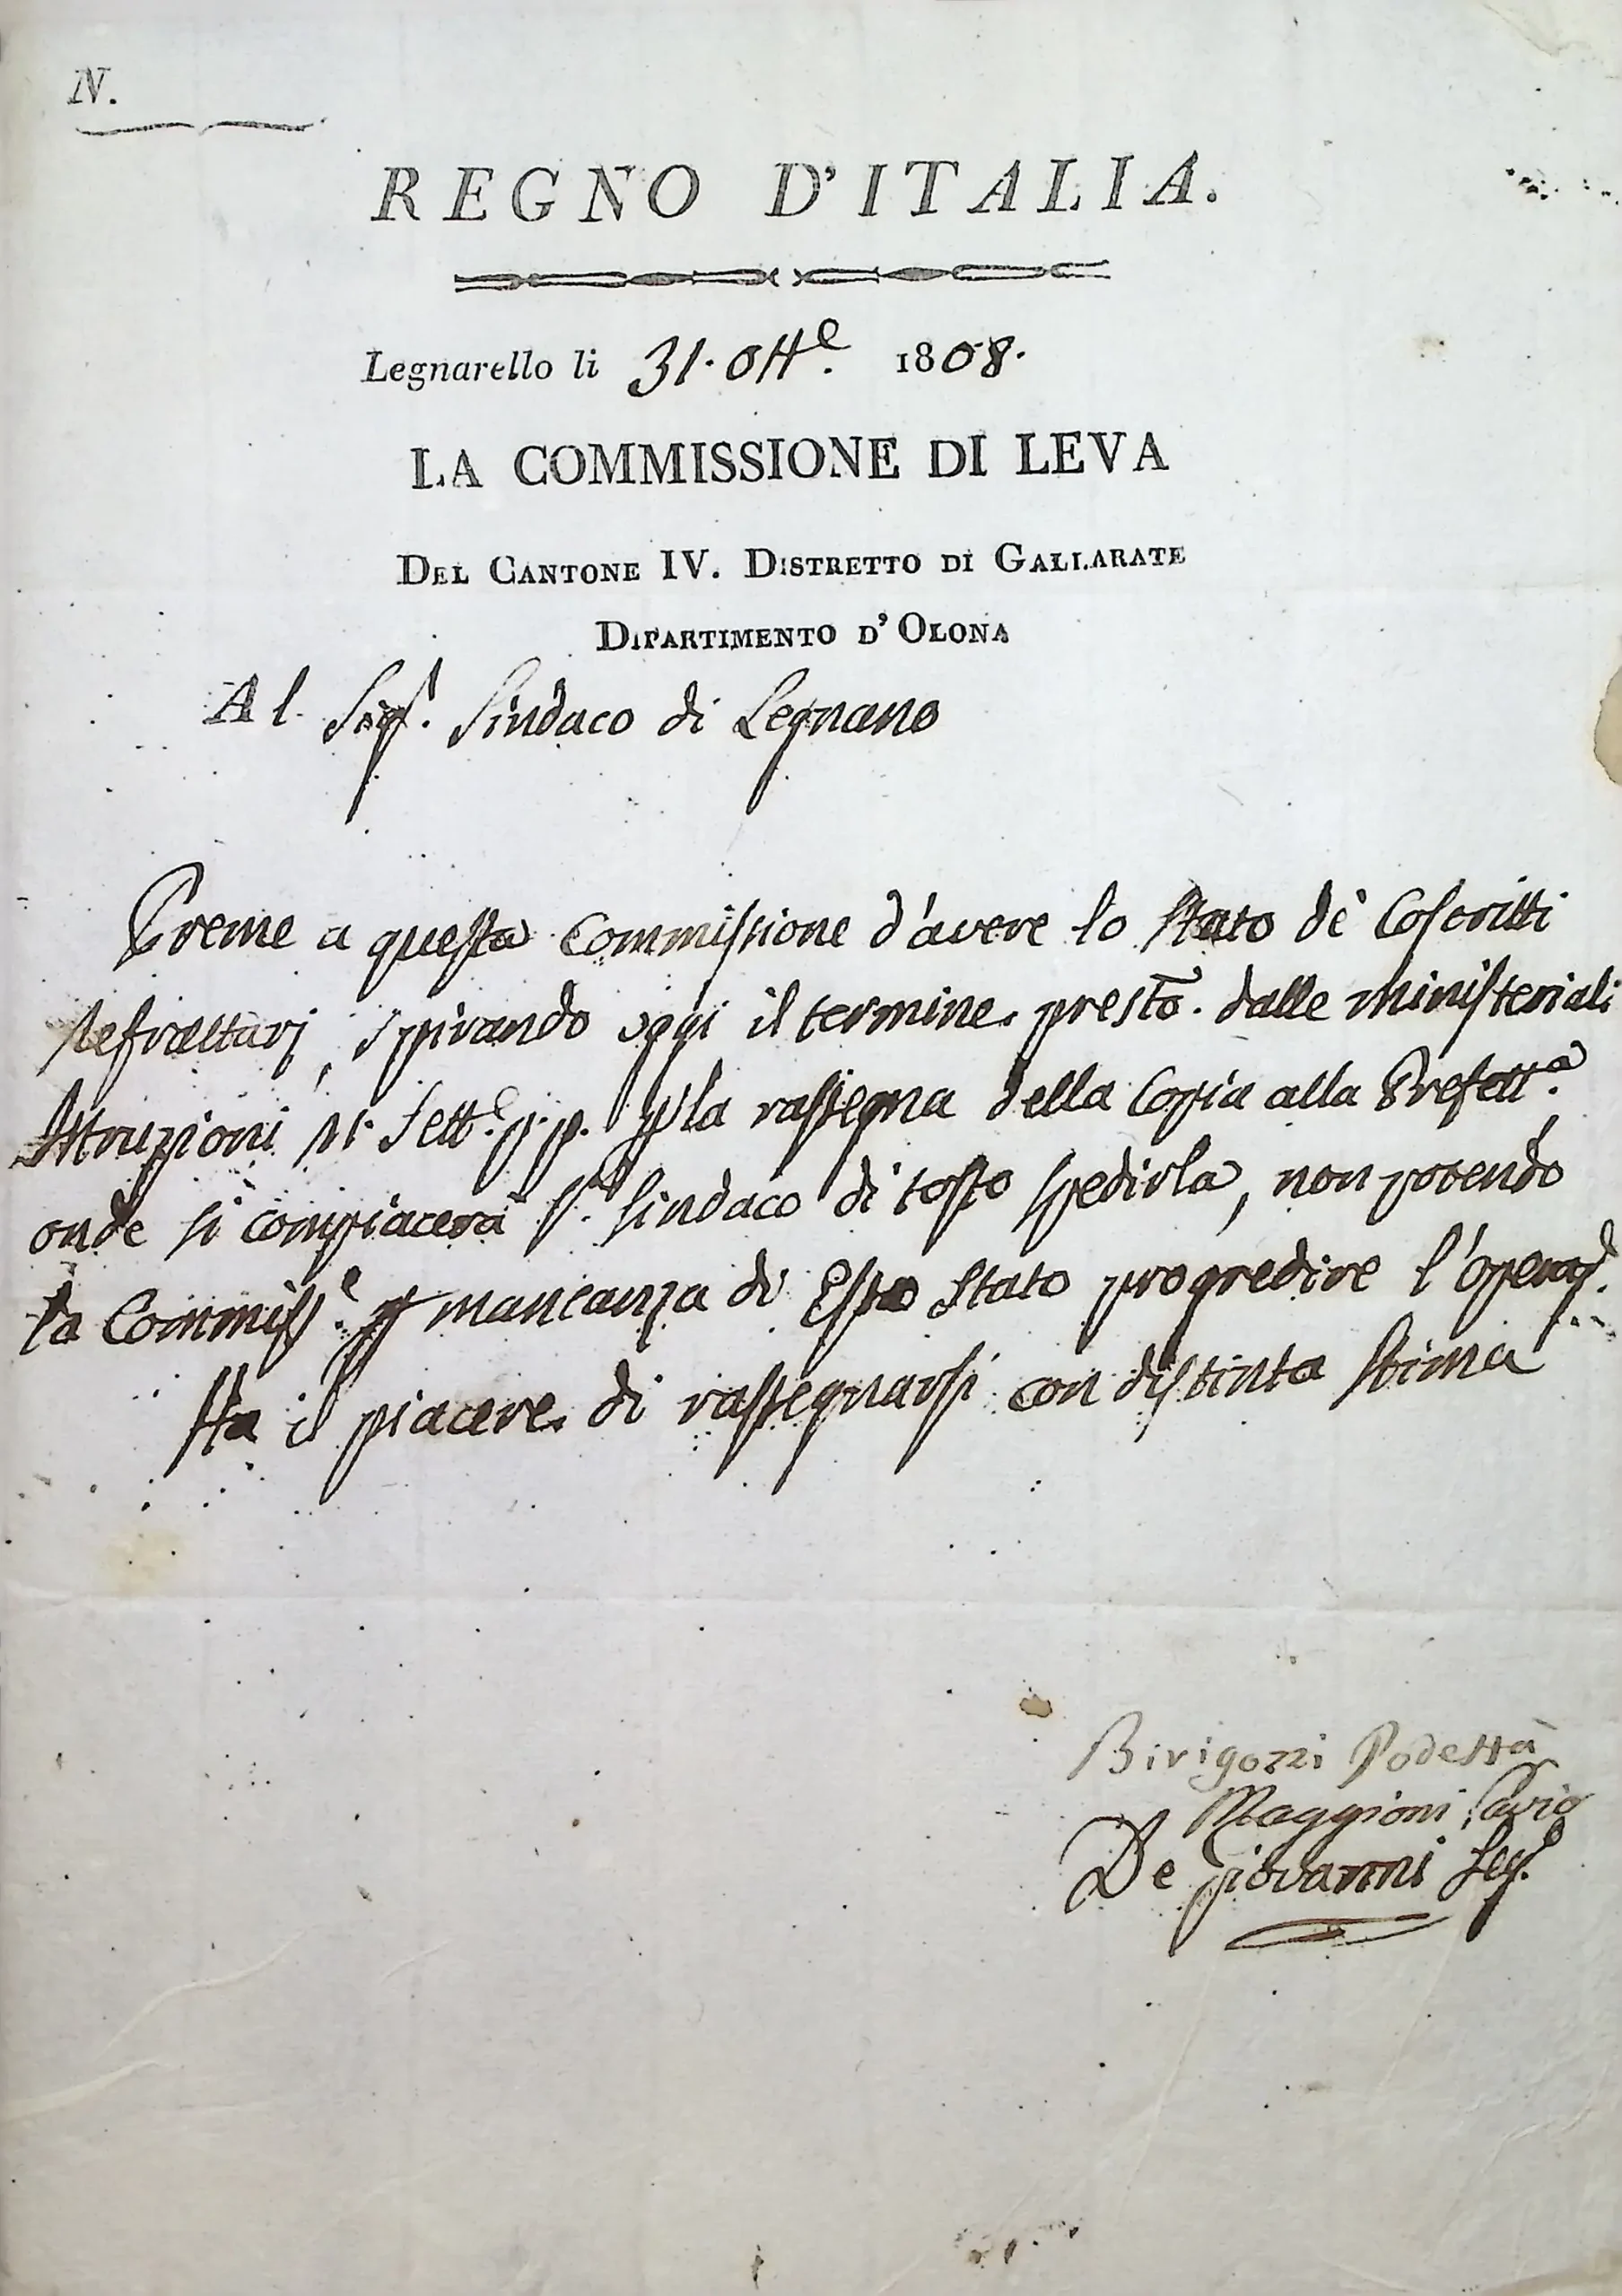 N.
REGNO D'ITALIA.
Legnarello li 31. Ott.e 1808.
LA COMMISSIONE DI LEVA
DEL CANTONE IV. DISTRETTO DI GALLARATE
DIPARTIMENTO D'OLONA
Al Sigr. Sindaco di Legnano
Preme a questa Commissione d'avere lo Stato de' Coscritti
Refrattarj, spirando oggi il termine prestõ. dalle Ministeriali
Istruzioni Sett.e p.p. p la rassegna della Copia alla Prefett.a,
onde si compiacerà Sr. Sindaco di tosto spedirla, non potendo
la Commiss.e p mancanza di Esso Stato progredire l'operaz.
Ha il piacere di rassegnarsi con distinta stima
Birigozzi Podestà
Maggioni Savio
De Giovanni Seg.